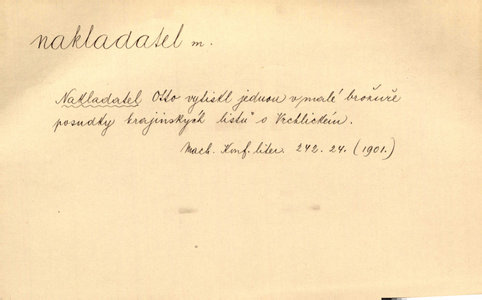 nakladatel m.
Nakladatel Otto vytiskl jednou v malé brožuře
posudky krajinských listů o Vrchlickém.
Mach. Konf. liter. 242. 24. (1901.)